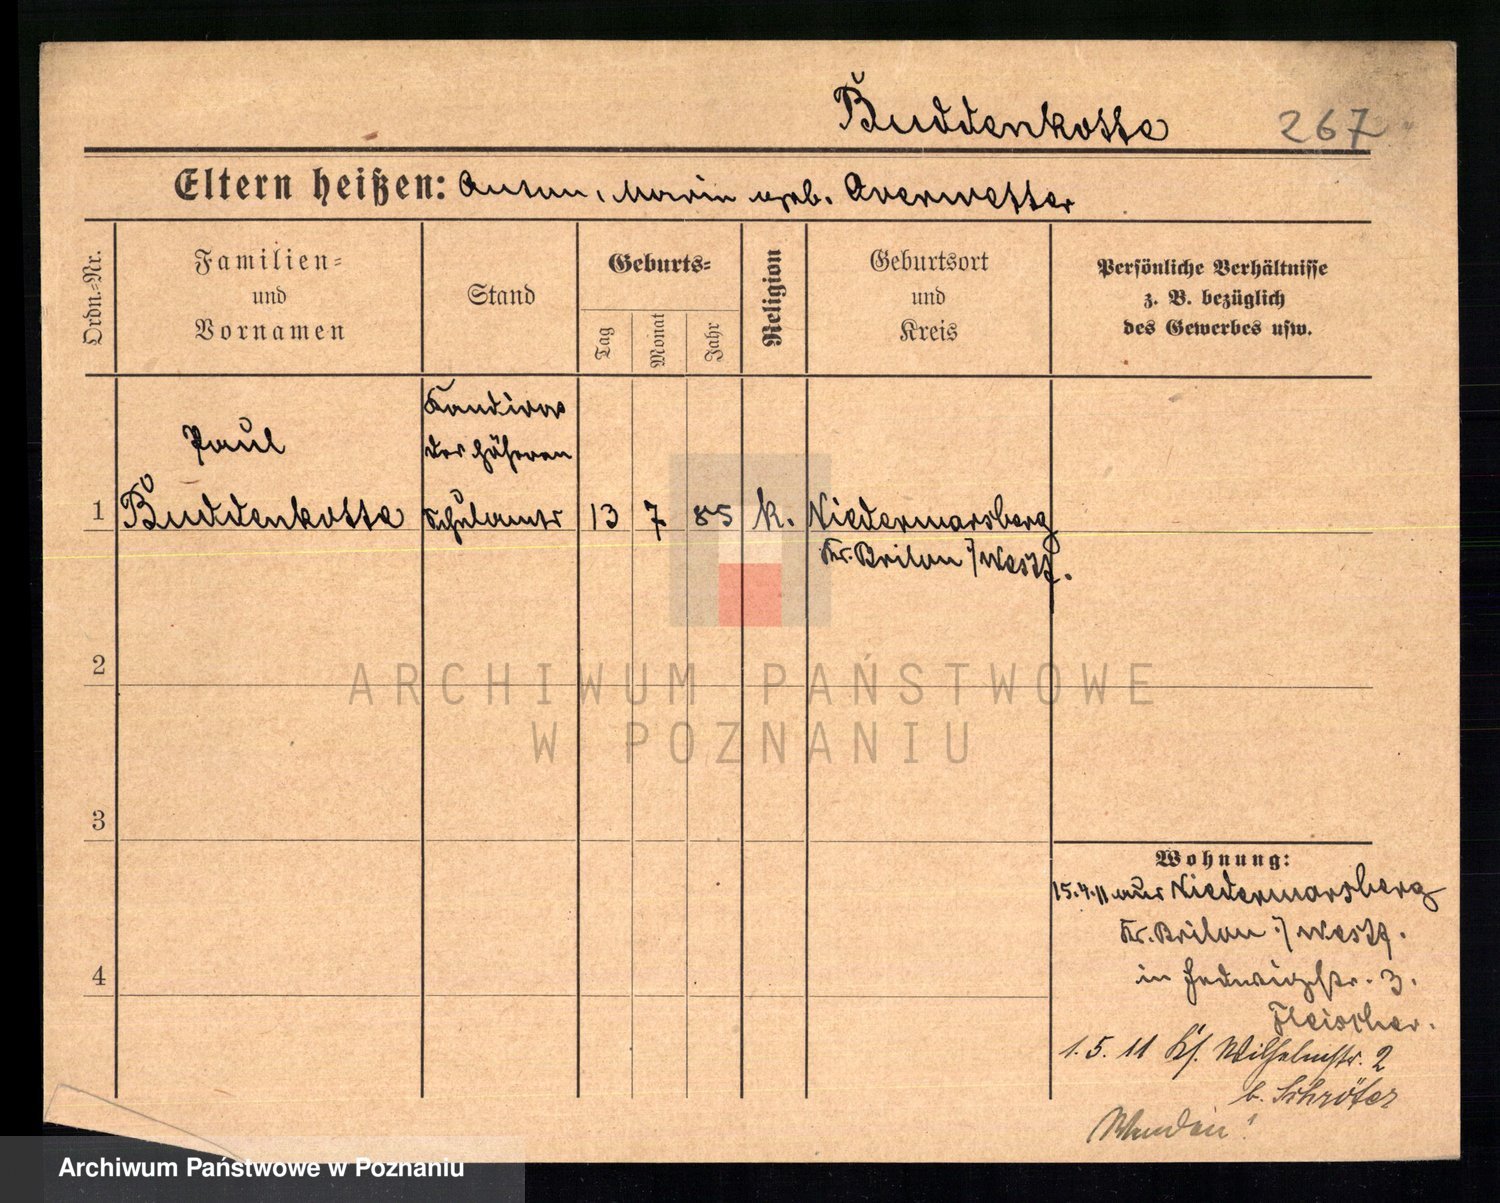 Buddenkotte
267
Eltern heißen: Anton, Maria geb. Averwetter
Ordn.-Nr.
Familien-
und
Vornamen
Stand
Geburts-
Tag
Monat
Jahr
Religion
Geburtsort
und
Kreis
Persönliche Verhältnisse
z. B. bezüglich
des Gewerbes usw.
Kandidat
Paul
der höheren
1 Buddenkotte Schulamts 13 7. 85 k. Niedermarsberg
Kr. Brilon i/Westf.
2
ARCHIWUM PAŃSTWOWE
W POZNANIU
3
Wohnung:
15.4.11 aus Niedermarsberg
Kr. Brilon i/Westf.
4
in Hedwigstr. 3.
Fleischer.
1.5.11 Kl. Wilhelmstr. 2
b. Schröter
Archiwum Państwowe w Poznaniu